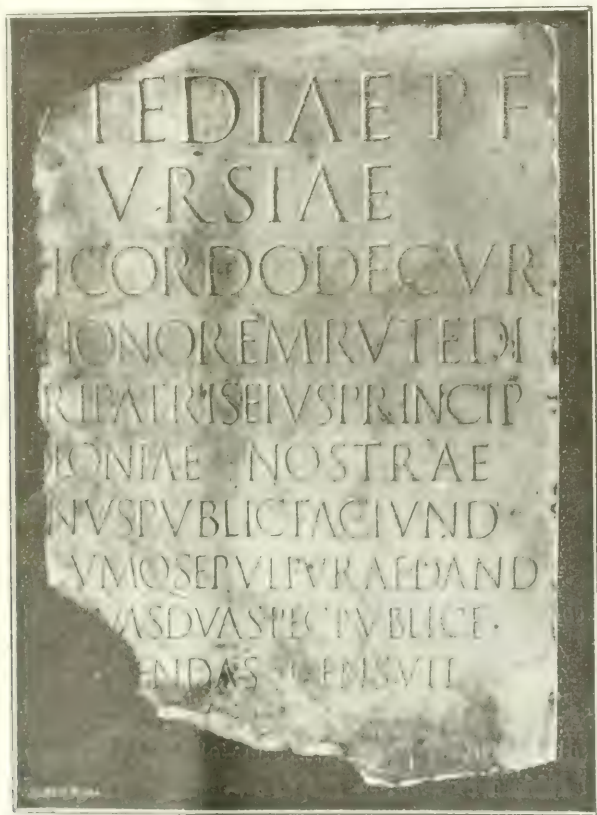 TEDIAE P F
VRSIAE
IC ORDO DECVR
HONOREM P. V TEDI
RI PATRIS EIVS PRINCIP
LONIAE NOSTRAE
NVS PVBLIC FACIVND
VMQ SEPVLTVRAE DAND
VAS DVAS PEC PVBLICE
ENDAS CENSVIT